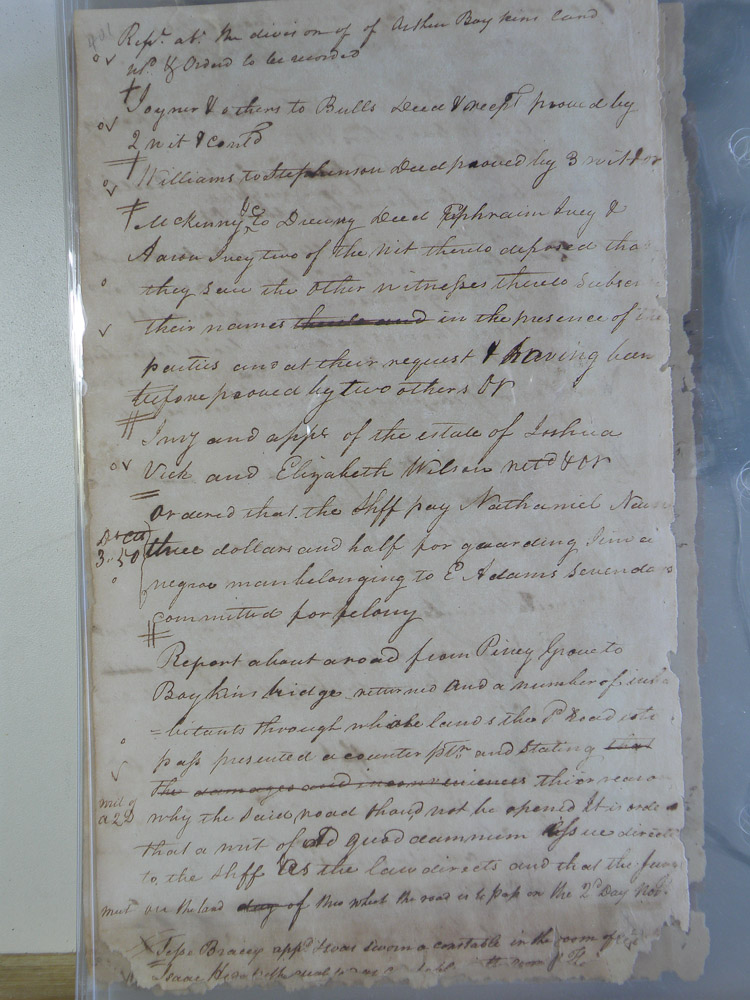 Rep.t ab.t the division of of Arthur Boykins land
& Orderd to be recorded
Joyner & others to Bulls Deed & recep.t proved by
2 wit & cont.d
Williams to Stephenson Deed proved by 3 wit & or
McKinny to Drewry Deed Ephraim Ivey &
Aaron Ivey two of the wit thereto deposed tha
they saw the other witnesses thereto Subscri
their names thereto and in the presence of the
parties and at their request & having been
before proved by two others Or
Invy and app.t of the estate of Joshua
Vick and Elizabeth Wilson ret.d & Or
Ordered that the Shff pay Nathaniel
D Cts
3..50 three dollars and half for guarding Jim a
negroe man belonging to E Adams Seven da
committed for felony
Report about a road from Piney Grove to
Boykins bridge returned and a number of inha
=bitants through whose lands the Sd Road is to
pass presented a counter pt.n and Stating that
the damages and inconveniences their reaso
why the Said road shoud not be opened It is orde
a 2D
that a writ of Ad quod damnum issue directe
to the Shff as the law directs and that the
meet on the land day of thro which the road is to pass on the 2.d Day Nov.
Jesse Bracey app.d & was sworn a constable in the room of
Isaac